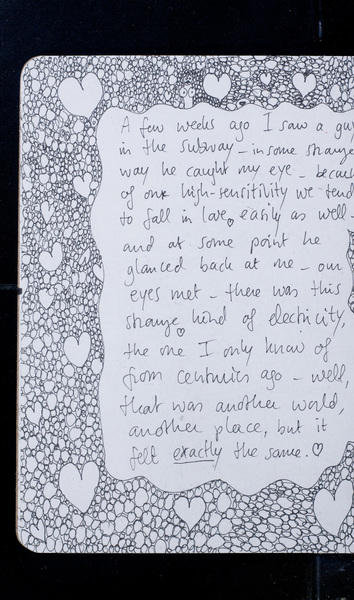 A few weeks ago I saw a guy
in the subway – in some strange
way he caught my eye – because
of our high-sensitivity we tend
to fall in love easily as well –
and at some point he
glanced back at me – our
eyes met – there was this
strange kind of electricity,
the one I only know of
from centuries ago – well,
that was another world,
another place, but it
felt exactly the same. ♡